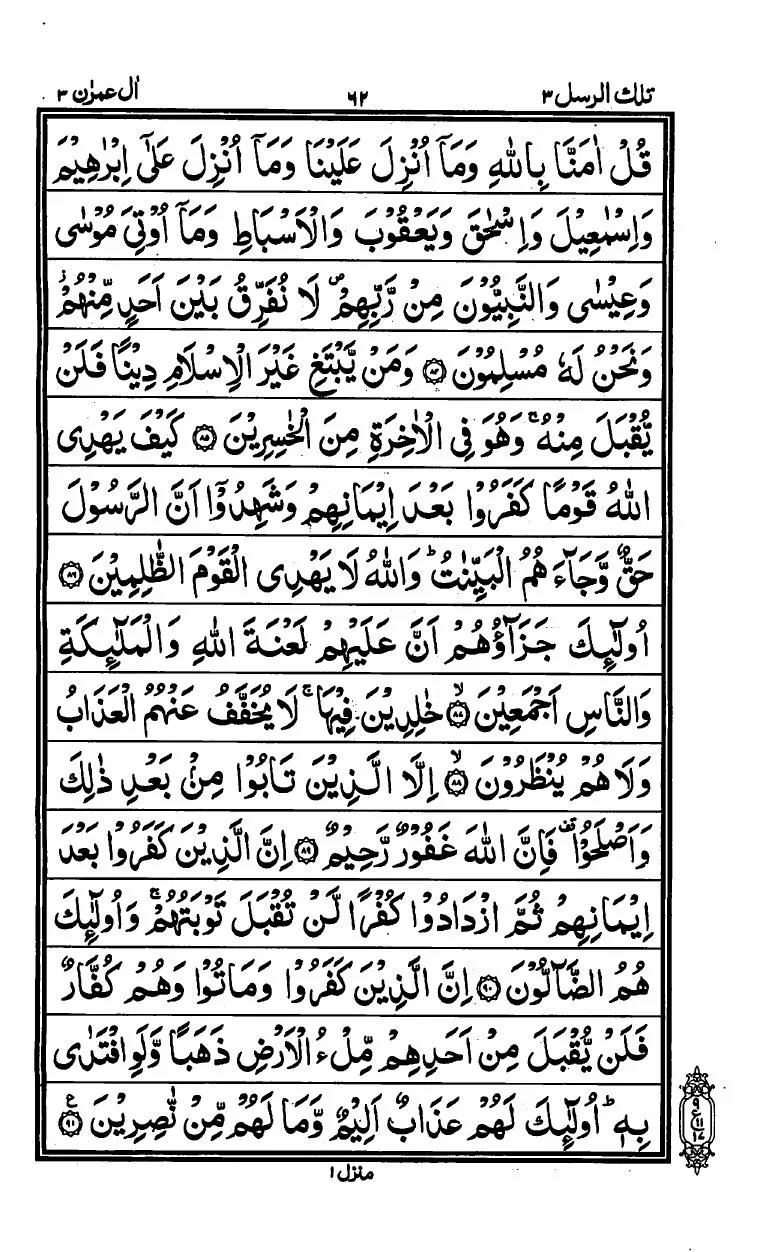 تلك الرسل ٣
٦٢
اٰل عمرٰن ٣
قُلْ اٰمَنَّا بِاللّٰهِ وَمَآ اُنْزِلَ عَلَيْنَا وَمَآ اُنْزِلَ عَلٰٓى اِبْرٰهِيْمَ
وَاِسْمٰعِيْلَ وَاِسْحٰقَ وَيَعْقُوْبَ وَالْاَسْبَاطِ وَمَآ اُوْتِيَ مُوْسٰى
وَعِيْسٰى وَالنَّبِيُّوْنَ مِنْ رَّبِّهِمْ ۪ لَا نُفَرِّقُ بَيْنَ اَحَدٍ مِّنْهُمْ ۡ
وَنَحْنُ لَهٗ مُسْلِمُوْنَ ۝٨٤ وَمَنْ يَّبْتَغِ غَيْرَ الْاِسْلَامِ دِيْنًا فَلَنْ
يُّقْبَلَ مِنْهُ ۚ وَهُوَ فِى الْاٰخِرَةِ مِنَ الْخٰسِرِيْنَ ۝٨٥ كَيْفَ يَهْدِى
اللّٰهُ قَوْمًا كَفَرُوْا بَعْدَ اِيْمَانِهِمْ وَشَهِدُوْٓا اَنَّ الرَّسُوْلَ
حَقٌّ وَّجَآءَهُمُ الْبَيِّنٰتُ ؕ وَاللّٰهُ لَا يَهْدِى الْقَوْمَ الظّٰلِمِيْنَ ۝٨٦
اُولٰٓئِكَ جَزَآؤُهُمْ اَنَّ عَلَيْهِمْ لَعْنَةَ اللّٰهِ وَالْمَلٰٓئِكَةِ
وَالنَّاسِ اَجْمَعِيْنَ ۙ۝٨٧ خٰلِدِيْنَ فِيْهَا ۚ لَا يُخَفَّفُ عَنْهُمُ الْعَذَابُ
وَلَا هُمْ يُنْظَرُوْنَ ۙ۝٨٨ اِلَّا الَّذِيْنَ تَابُوْا مِنْۢ بَعْدِ ذٰلِكَ
وَاَصْلَحُوْا ۫ فَاِنَّ اللّٰهَ غَفُوْرٌ رَّحِيْمٌ ۝٨٩ اِنَّ الَّذِيْنَ كَفَرُوْا بَعْدَ
اِيْمَانِهِمْ ثُمَّ ازْدَادُوْا كُفْرًا لَّنْ تُقْبَلَ تَوْبَتُهُمْ ۚ وَاُولٰٓئِكَ
هُمُ الضَّآلُّوْنَ ۝٩٠ اِنَّ الَّذِيْنَ كَفَرُوْا وَمَاتُوْا وَهُمْ كُفَّارٌ
فَلَنْ يُّقْبَلَ مِنْ اَحَدِهِمْ مِّلْءُ الْاَرْضِ ذَهَبًا وَّلَوِ افْتَدٰى
بِهٖ ؕ اُولٰٓئِكَ لَهُمْ عَذَابٌ اَلِيْمٌ وَّمَا لَهُمْ مِّنْ نّٰصِرِيْنَ ۝٩١ ع
٩
ع ١١
١٧
منزل ١